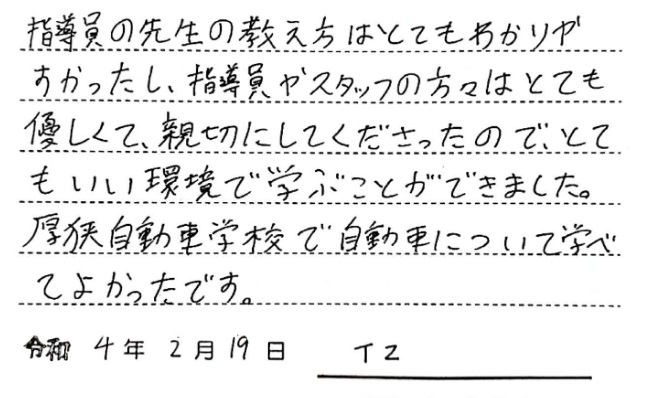 指導員の先生の教え方はとてもわかりや
すかったし、指導員やスタッフの方々はとても
優しくて、親切にしてくださったので、とて
もいい環境で学ぶことができました。
厚狭自動車学校で自動車について学べ
てよかったです。
令和 4 年 2 月 19 日 T Z